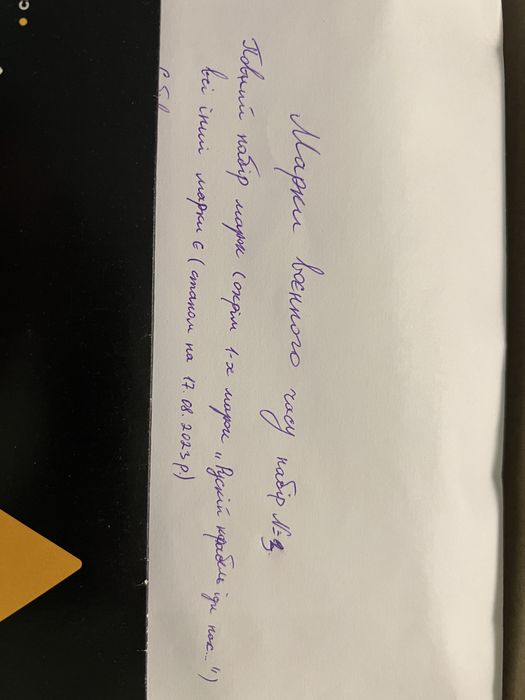 Марки воєнного часу набір №3.
Повний набір марок (окрім 1-х марок „Рускій корабль іди нах...")
всі інші марки є (станом на 17.08.2023р.)